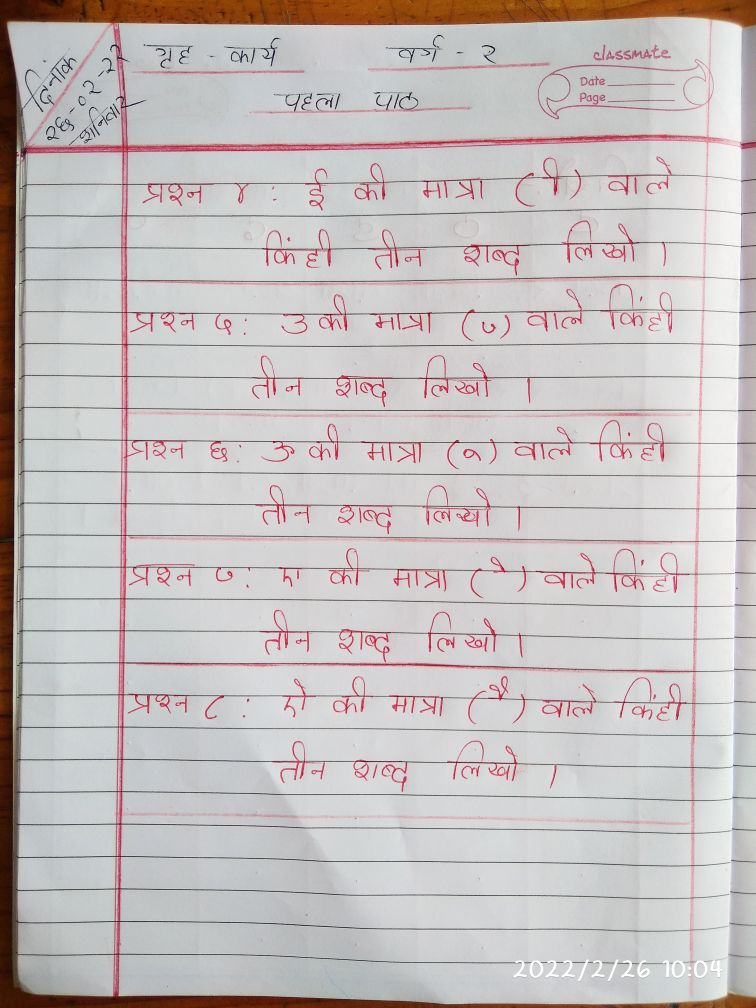 दिनांक
२६-०२-२२
शनिवार
गृह - कार्य वर्ग - २
classmate
Date
Page
पहला पाठ
प्रश्न ४ : ई की मात्रा ( ी ) वाले
किंही तीन शब्द लिखो ।
प्रश्न ५ : उ की मात्रा ( ु ) वाले किंही
तीन शब्द लिखो ।
प्रश्न ६ : ऊ की मात्रा ( ू ) वाले किंही
तीन शब्द लिखो ।
प्रश्न ७ : ए की मात्रा ( े ) वाले किंही
तीन शब्द लिखो ।
प्रश्न ८ : ऐ की मात्रा ( ै ) वाले किंही
तीन शब्द लिखो ।
2022/2/26 10:04